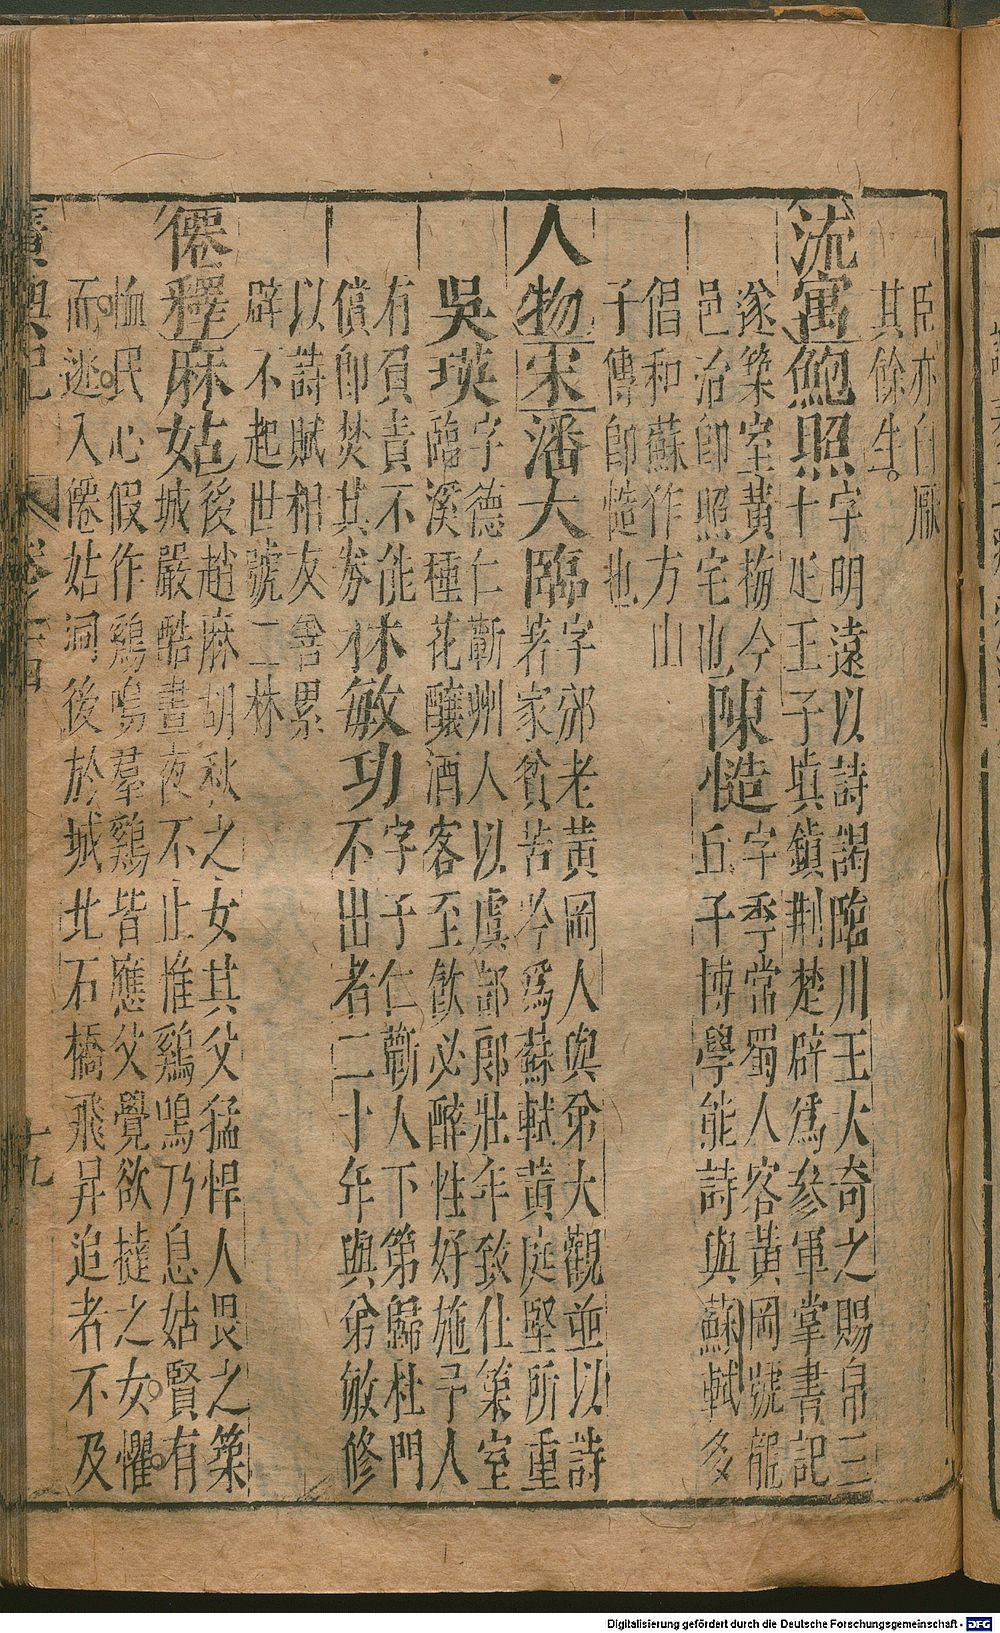 臣亦自厭
其餘生。
流寓鮑照字明遠以詩謁臨川王大奇之賜帛三
十疋王子真鎮荆楚辟爲參軍掌書記
遂築室黄梅今
邑治即照宅也陳慥字季常蜀人客黃岡號龍
丘子博學能詩與蘇軾多
倡和蘇作方山
子傳即慥也
人物宋潘大臨字邠老黄岡人與弟大觀並以詩
若家貧苦吟爲蘇軾黃庭堅所重
吳瑛字德仁蘄州人以虞部郎壯年致仕築室
臨溪種花釀酒客至飲必醉性好施予人
有負責不能
償即焚其券林敏功字子仁蘄人下第歸杜門
不出者二十年與弟敏修
以詩賦相友舍累
辟不起世號二林
僊釋麻姑後趙麻胡秋之女其父猛悍人畏之築
城嚴酷晝夜不止惟鷄鳴乃息姑賢有
恤民心假作鷄鳴羣鷄皆應父覺欲撻之女懼
而逃入僊姑洞後於城北石橋飛昇追者不及
廣輿記 卷之十四 十九
Digitalisierung gefördert durch die Deutsche Forschungsgemeinschaft - DFG